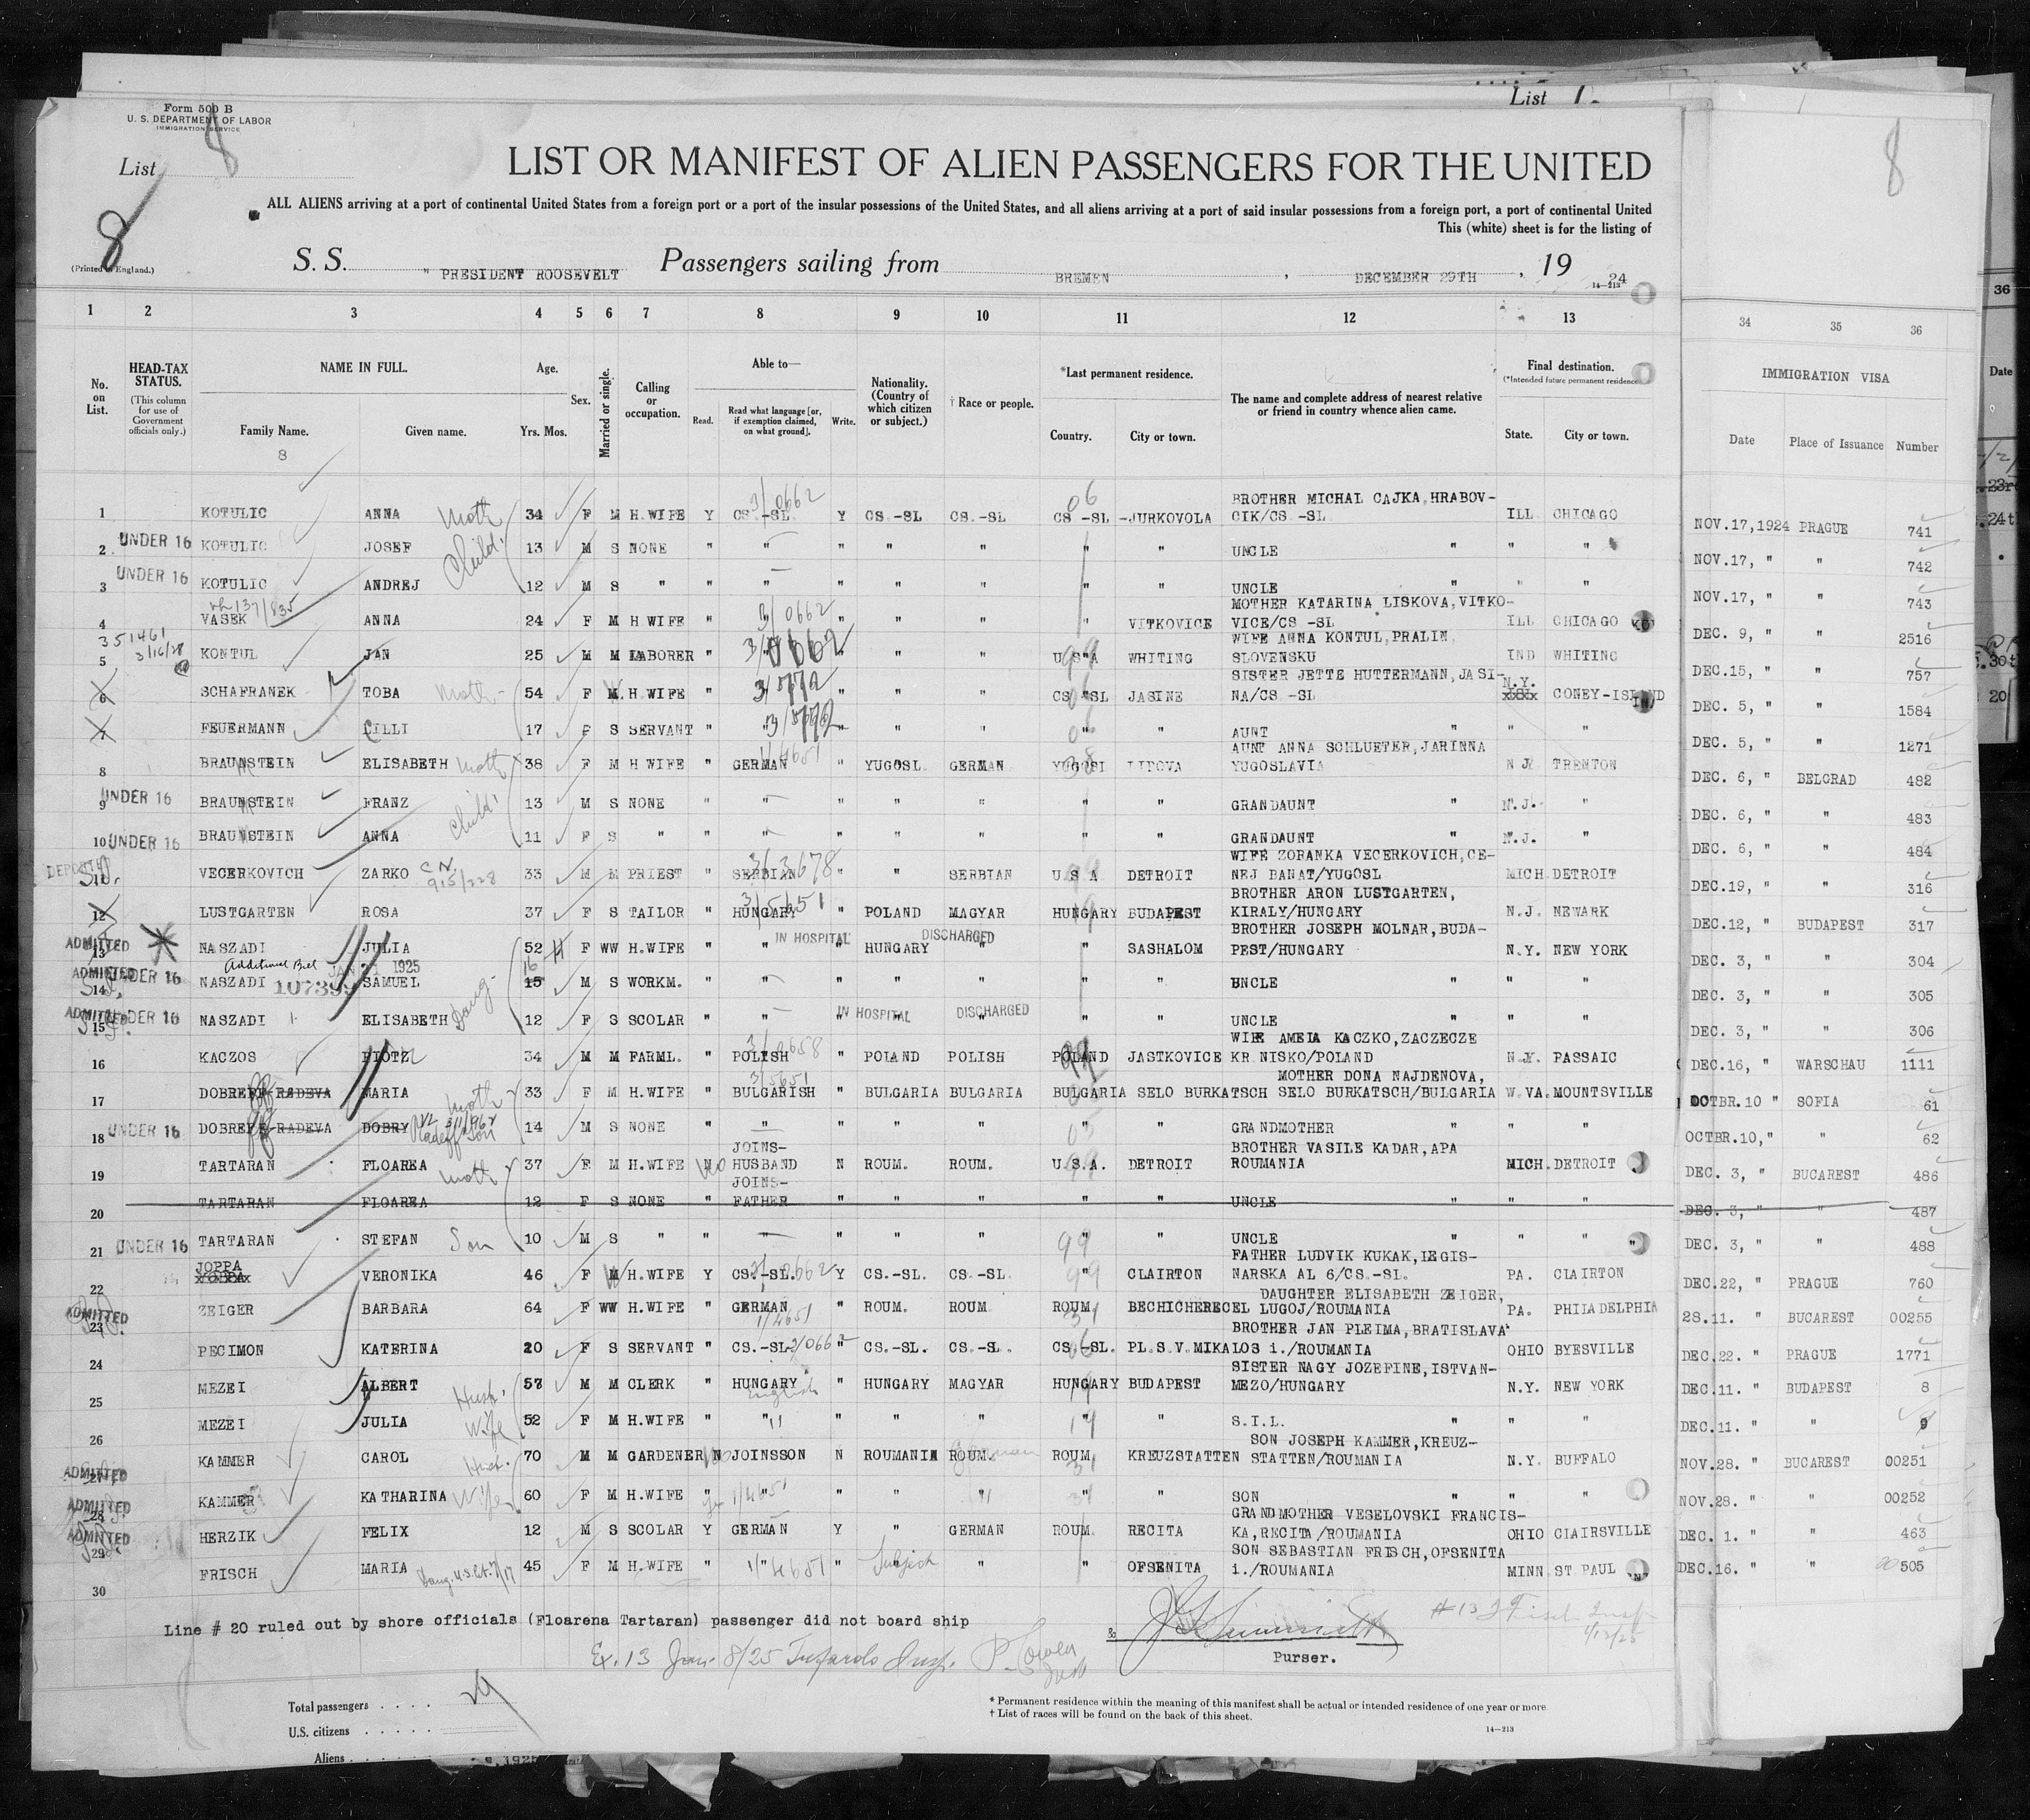 List
Form 500 B
U. S. DEPARTMENT OF LABOR
IMMIGRATION SERVICE
List 8
8
8
LIST OR MANIFEST OF ALIEN PASSENGERS FOR THE UNITED
ALL ALIENS arriving at a port of continental United States from a foreign port or a port of the insular possessions of the United States, and all aliens arriving at a port of said insular possessions from a foreign port, a port of continental United
This (white) sheet is for the listing of
(Printed in England.)
S. S. "PRESIDENT ROOSEVELT Passengers sailing from BREMEN , DECEMBER 29TH , 19 24
14—213
1 2 3 4 5 6 7 8 9 10 11 12 13 34 35 36
No. on List.
HEAD-TAX STATUS.
(This column for use of Government officials only.)
NAME IN FULL.
Family Name.
Given name.
8
Age.
Yrs. Mos.
Sex.
Married or single.
Calling or occupation.
Able to—
Read.
Read what language [or, if exemption claimed, on what ground].
Write.
Nationality. (Country of which citizen or subject.)
† Race or people.
*Last permanent residence.
Country.
City or town.
The name and complete address of nearest relative or friend in country whence alien came.
Final destination.
(*Intended future permanent residence.)
State.
City or town.
IMMIGRATION VISA
Date Place of Issuance Number
1 KOTULIC ANNA Moth 34 F M H.WIFE Y CS.-SL. 3/0662 Y CS.-SL CS.-SL CS -SL 06 -JURKOVOLA BROTHER MICHAL CAJKA,HRABOV-CIK/CS -SL ILL CHICAGO NOV.17,1924 PRAGUE 741
2 UNDER 16 KOTULIC JOSEF Child. 13 M S NONE " " " " " " " UNCLE " " " NOV.17, " " 742
3 UNDER 16 KOTULIC ANDREJ 12 M S " " " " " " " " UNCLE " " " NOV.17, " " 743
4 VASEK ANNA 24 F M H WIFE " " 3/0662 " " " " VITKOVICE MOTHER KATARINA LISKOVA,VITKO-VICE/CS -SL ILL CHICAGO DEC. 9, " " 2516
351461
3/16/28
5 KONTUL JAN 25 M M LABORER " " " " " U S A WHITING WIFE ANNA KONTUL,PRALIN SLOVENSKU IND WHITING DEC.15, " " 757
6 SCHAFRANEK TOBA Moth- 54 F M. H.WIFE " " " " " CS -SL JASINE SISTER JETTE HUTTERMANN,JASI-NA/CS -SL N.Y. CONEY-ISLAND DEC. 5, " " 1584
7 FEUERMANN CILLI 17 F S SERVANT " " " " " " " AUNT " " " DEC. 5, " " 1271
8 BRAUNSTEIN ELISABETH Moth 38 F M H WIFE " GERMAN 1/4651 " YUGOSL GERMAN YUGOSL LIPOVA AUNT ANNA SCHLUETER,JARINNA YUGOSLAVIA N J TRENTON DEC. 6, " BELGRAD 482
9 UNDER 16 BRAUNSTEIN FRANZ Child. 13 M S NONE " " " " " " " GRANDAUNT " N.J. " DEC. 6, " " 483
10 UNDER 16 BRAUNSTEIN ANNA 11 F S " " " " " " " " GRANDAUNT " N.J. " DEC. 6, " " 484
11 VECERKOVICH ZARKO C.N. 915/228 33 M M PRIEST " SERBIAN 3/3678 " " SERBIAN U S A DETROIT WIFE ZORANKA VECERKOVICH,CE-NEJ BANAT/YUGOSL MICH DETROIT DEC.19, " " 316
12 LUSTGARTEN ROSA 37 F S TAILOR " HUNGARY 3/5651 " POLAND MAGYAR HUNGARY BUDAPEST BROTHER ARON LUSTGARTEN, KIRALY/HUNGARY N.J. NEWARK DEC.12, " BUDAPEST 317
IN HOSPITAL DISCHARGED
13 ADMITTED NASZADI JULIA 52 F WW H.WIFE " " " HUNGARY " " SASHALOM BROTHER JOSEPH MOLNAR,BUDA-PEST/HUNGARY N.Y. NEW YORK DEC. 3, " " 304
Additional Bill JAN 1925 107399
14 ADMITTED UNDER 16 NASZADI SAMUEL 16 15 M S WORKM. " " " " " " " UNCLE " " " DEC. 3, " " 305
IN HOSPITAL DISCHARGED
15 ADMITTED UNDER 16 NASZADI ELISABETH Daug- 12 F S SCOLAR " " " " " " " UNCLE " " " DEC. 3, " " 306
16 KACZOS PIOTZ 34 M M FARML. " POLISH 3/0658 " POLAND POLISH POLAND JASTKOVICE WIFE AMELA KACZKO,ZACZECZE KR.NISKO/POLAND N.Y. PASSAIC DEC.16, " WARSCHAU 1111
17 DOBREFF RADEVA MARIA Moth 33 F M H.WIFE " BULGARISH 3/5651 " BULGARIA BULGARIA BULGARIA SELO BURKATSCH MOTHER DONA NAJDENOVA, SELO BURKATSCH/BULGARIA W.VA. MOUNTSVILLE OCTBR.10 " SOFIA 61
18 UNDER 16 DOBREFF RADEVA DOBRY Radeff Son 14 M S NONE " " " " " " " GRANDMOTHER " " " OCTBR.10," " 62
19 TARTARAN FLOAREA Moth 37 F M H.WIFE NO JOINS-HUSBAND N ROUM. ROUM. U.S.A. DETROIT BROTHER VASILE KADAR,APA ROUMANIA MICH. DETROIT DEC. 3, " BUCAREST 486
20 TARTARAN FLOAREA 12 F S NONE " JOINS-FATHER " " " " " UNCLE " " " DEC. 3, " " 487
21 UNDER 16 TARTARAN STEFAN Son 10 M S " " " " " " " " UNCLE " " " DEC. 3, " " 488
22 JOPPA VERONIKA 46 F M H.WIFE Y CS.-SL. Y CS.-SL. CS.-SL. " CLAIRTON FATHER LUDVIK KUKAK,LEGIS-NARSKA AL 6/CS.-SL. PA. CLAIRTON DEC.22, " PRAGUE 760
23 ADMITTED ZEIGER BARBARA 64 F WW H.WIFE " GERMAN 1/4651 " ROUM. ROUM ROUM. BECHICHERECEL DAUGHTER ELISABETH ZEIGER, LUGOJ/ROUMANIA PA. PHILADELPHIA 28.11. " BUCAREST 00255
24 PECIMON KATERINA 20 F S SERVANT " CS.-SL " CS.-SL. CS.-SL. CS.-SL. PL.S.V.MIKALOS BROTHER JAN PLEIMA,BRATISLAVA i./ROUMANIA OHIO BYESVILLE DEC.22. " PRAGUE 1771
25 MEZEI ALBERT Husb. 57 M M CLERK " HUNGARY English " HUNGARY MAGYAR HUNGARY BUDAPEST SISTER NAGY JOZEFINE,ISTVAN-MEZO/HUNGARY N.Y. NEW YORK DEC.11. " BUDAPEST 8
26 MEZEI JULIA Wife 52 F M H.WIFE " " " " " " " S.I.L. " " " DEC.11. " " 9
27 ADMITTED KAMMER CAROL Husb. 70 M M GARDENER N JOINSSON N ROUMANIA ROUM. German ROUM. KREUZSTATTEN SON JOSEPH KAMMER,KREUZ-STATTEN/ROUMANIA N.Y. BUFFALO NOV.28. " BUCAREST 00251
28 ADMITTED KAMMER KATHARINA Wife 60 F M H.WIFE " " 1/4651 " " " " " SON " " " NOV.28. " " 00252
29 ADMITTED HERZIK FELIX 12 M S SCOLAR Y GERMAN Y " GERMAN ROUM. RECITA GRANDMOTHER VESELOVSKI FRANCIS-KA,RECITA/ROUMANIA OHIO CLAIRSVILLE DEC. 1. " " 463
30 FRISCH MARIA 45 F M H.WIFE " " 1/4651 " Subject " " OFSENITA SON SEBASTIAN FRISCH,OFSENITA i./ROUMANIA MINN ST PAUL DEC.16. " " 505
Line # 20 ruled out by shore officials (Floarena Tartaran) passenger did not board ship
Ex. 13 Jan. 8/25
Purser.
Total passengers . . . . 29
U.S. citizens . . . . .
Aliens . .
* Permanent residence within the meaning of this manifest shall be actual or intended residence of one year or more
† List of races will be found on the back of this sheet.
14—213